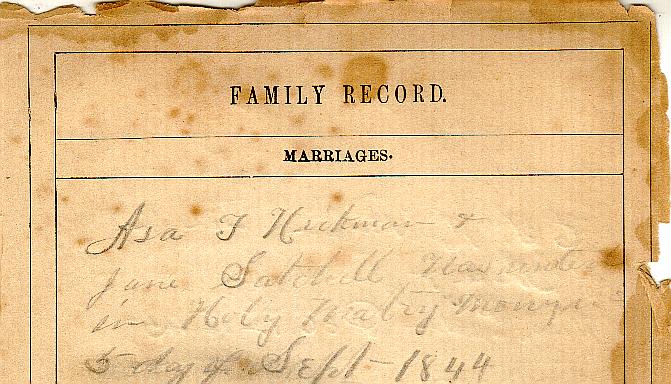 FAMILY RECORD.
MARRIAGES.
Asa F Hickman &
Jane Satchell Was united
in Holy Matrymony
5 day of Sept 1844